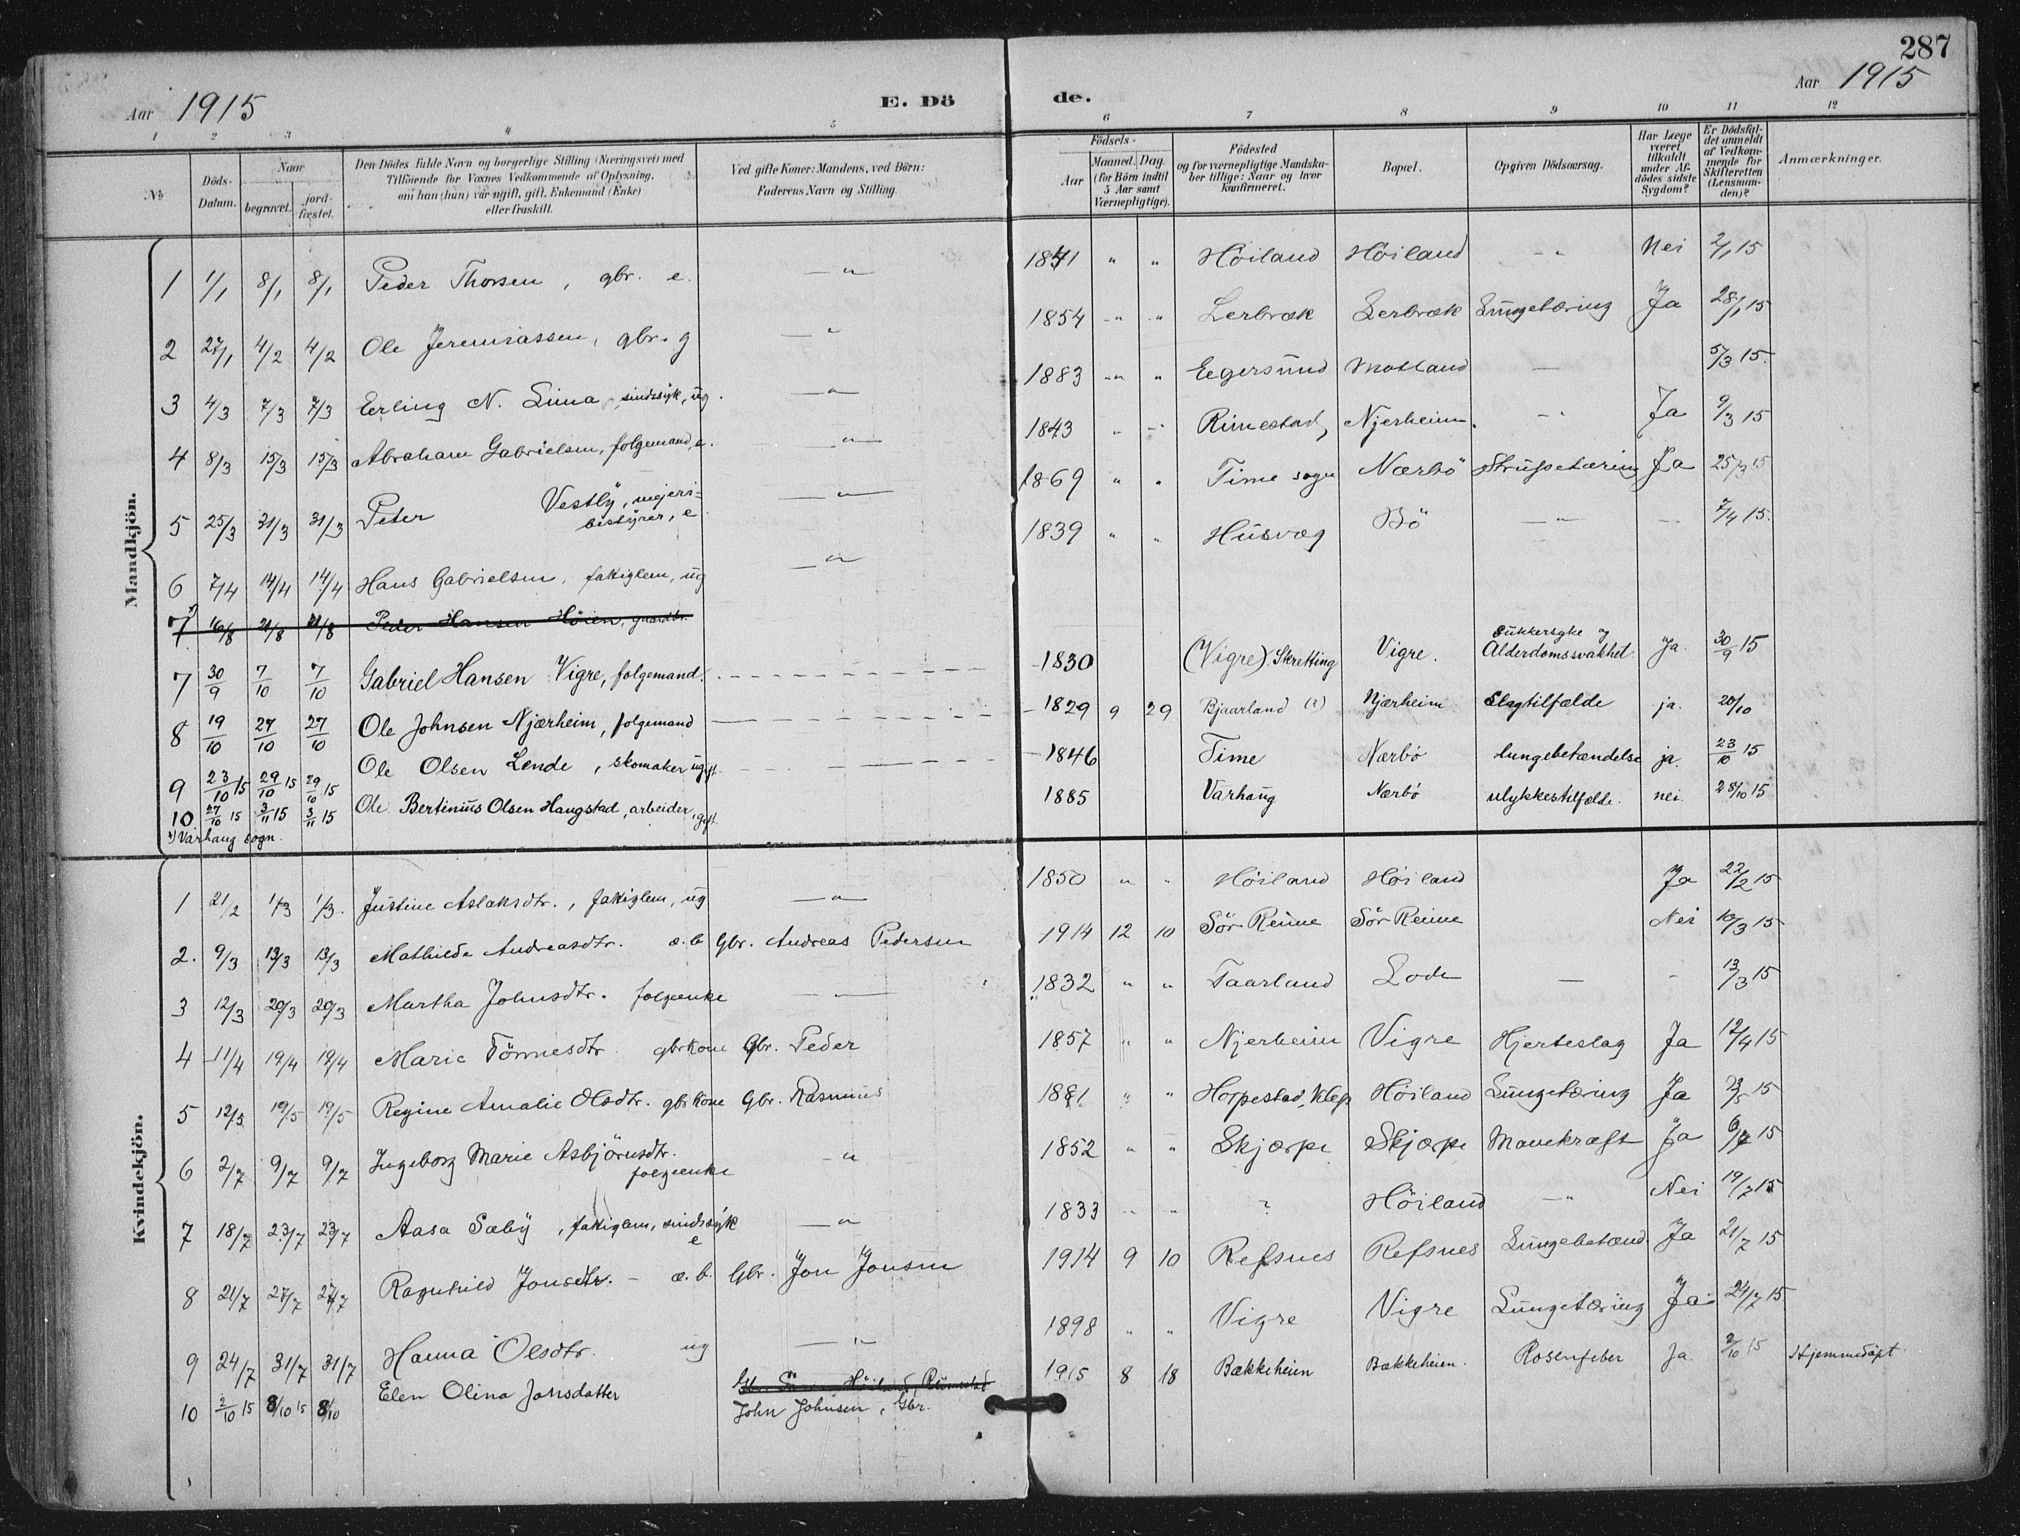 287
Aar 1915 E. Dö de. Aar 1915
1 2 3 4 5 6 7 8 9 10 11 12
No
Döds-Datum.
Naar
begravet. jord-fæstet.
Den Dödes fulde Navn og borgerlige Stilling (Næringsvei) med
Tilföiende for Voxnes Vedkommende af Oplysning,
om han (hun) var ugift, gift, Enkemand (Enke)
eller fraskilt.
Ved gifte Koner: Mandens, ved Börn:
Faderens Navn og Stilling.
Födsels-
Aar Maaned. Dag.
(for Börn indtil
5 Aar samt
Værnepligtige).
Födested
og for værnepligtige Mandska-
ber tillige: Naar og hvor
konfirmeret.
Bopæl.
Opgiven Dödsaarsag.
Har Læge
været
tilkaldt
under Af-
dödes sidste
Sygdom?
Er Dödsfal-
det anmeldt
af Vedkom-
mende for
Skifteretten
(Lensman-
den)?
Anmærkninger.
Mandkjön.
1 1/1 8/1 8/1 Peder Thorsen, gbr. e. — " — 1841 " " Höiland Höiland - " Nei 2/1 15
2 27/1 4/2 4/2 Ole Jeremiassen, gbr. g — " 1854 " " Lerbræk Lerbræk Lungetæring Ja 28/1 15
3 4/3 7/3 7/3 Erling N. Lima, sindssyk, ug. — " — 1883 " " Egersund Motland — 5/3 15.
4 8/3 15/3 15/3 Abraham Gabrielsen, folgemand, e. — " — 1843 " " Rimestad, Njerheim. - " Ja 9/3 15
5 25/3 31/3 31/3 Peter Vestly, mejeri-
bestyrer, e — " — 1869 " " Time sogn Nærbö Strupetæring Ja 25/3 15
6 7/4 14/4 14/4 Hans Gabrielsen, fattiglem, ug — " 1839 " " Husvæg Bö — " — — 7/4 15.
7 16/8 21/8 21/8 Peder Hansen Höien, gaardbr.
7 30/9 7/10 7/10 Gabriel Hansen Vigre, folgemand. 1830 (Vigre) Skretting Vigre. Sukkersyke og
Alderdomssvakhet. Ja. 30/9 15
8 19/10 27/10 27/10 Ole Johnsen Njærheim, folgemand 1829 9 29 Bjaarland (?) Njærheim Slagtilfælde ja. 20/10
9 23/10 15 29/10 15 29/10 15 Ole Olsen Lende, skomaker ugift. 1846 Time Nærbö lungebetændelse ja. 23/10 15
10 27/10 15 3/11 15 3/11 15 Ole Bertinius Olsen Haugstad, arbeider, gift. 1885 Varhaug Nærbö ulykkestilfælde. nei 28/10 15
1) Varhaug sogn.
Kvindekjön.
1 21/2 1/3 1/3. Justine Aslaksdtr., fattiglem, ug — " — 1850 " " Höiland Höiland Ja 22/2 15
2. 9/3 13/3 13/3 Mathilde Andreasdtr. æ. b Gbr. Andreas Pedersen 1914 12 10 Sör Reime Sör Reime Nei 10/3 15
3 12/3 20/3 20/3 Martha Johnsdtr. folgeenke — " — 1832 " " Taarland Lode — - 13/3 15
4 11/4 19/4 19/4 Marie Tönnesdtr gbrkone Gbr. Peder 1857 " " Njerheim Vigre Hjerteslag Ja 12/4 15
5 12/5 19/5 19/5 Regine Amalie Olsdtr. gbrkone Gbr. Rasmus 1881 " " Horpestad, Klep Höiland Lungetæring Ja 15
6 2/7 9/7 9/7 Ingeborg Marie Asbjörnsdtr.
folgeenke — " 1852 " " Skjærpe Skjærpe Mavekræft Ja 6/7 15
7 18/7 23/7 23/7 Aasa Sæby, fattiglem, sindssyk
e — " 1833 " " ? Höiland — " Nei 19/7 15
8 21/7 27/7 27/7 Ragnhild Jonsdtr. - æ. b. Gbr. Jon Jonsen 1914 9 10 Refsnes Refsnes Lungebetænd Ja 21/7 15
9 24/7 31/7 31/7 Hanna Olsdtr. ug — " — 1898 " " Vigre Vigre Lungetæring Ja 24/7 15
10 2/10 15 8/10 15 8/10 Elen Olina Jonsdatter
John Johnsen, Gbr. 1915 8 18 Bækkeheien Bækkeheien. Rosenfeber Ja. 2/10 15 Hjemmedöpt